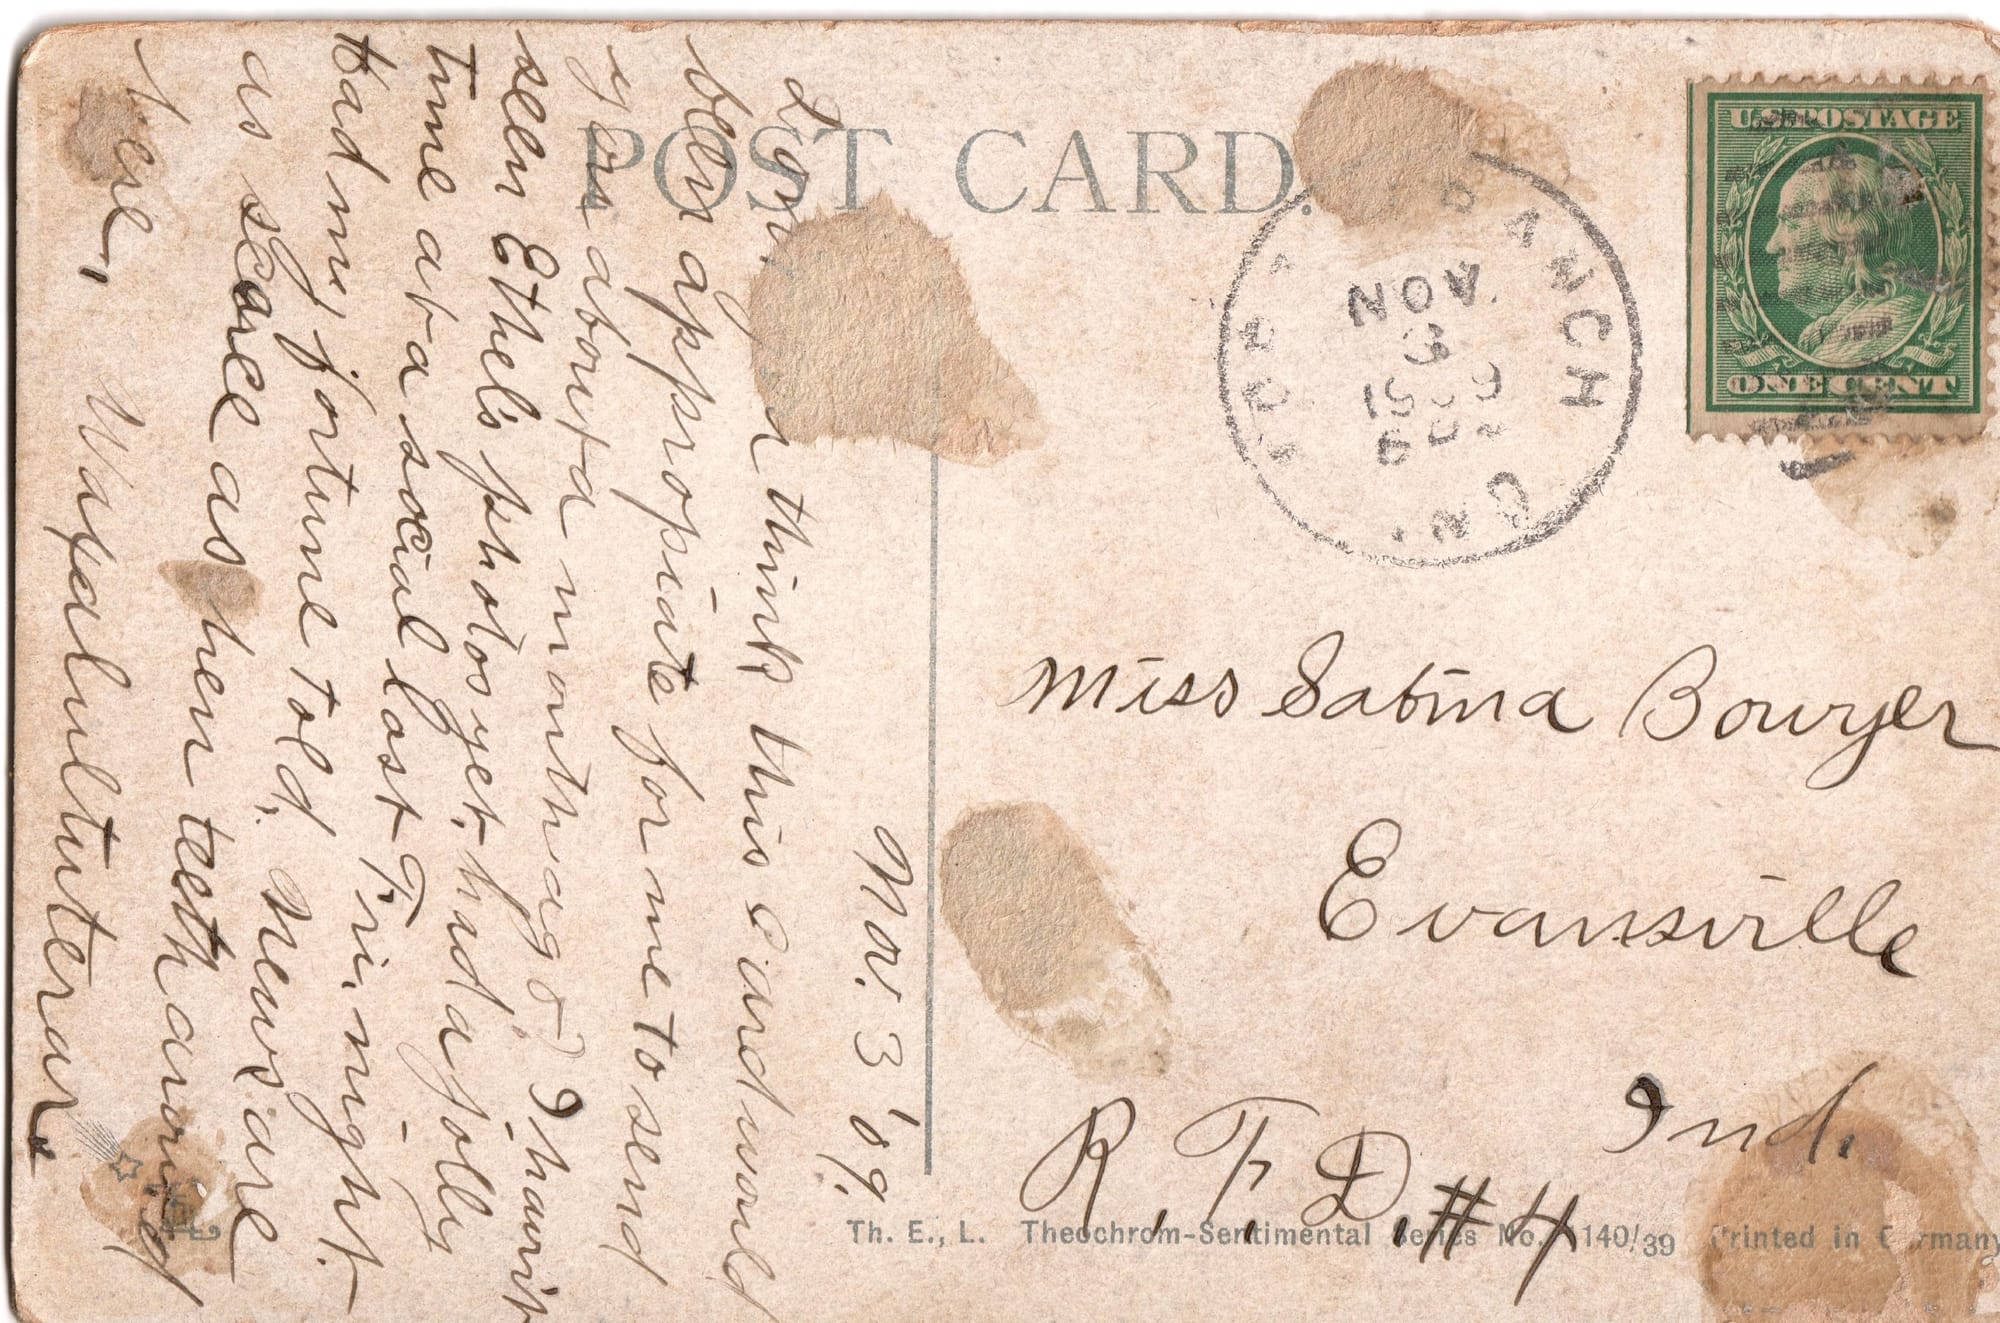 POST CARD.
U.S. POSTAGE
ONE CENT
NOV.
3
IND.
Nov. 3 '09.
think this card would
been appropriate for me to send
you about a month ago? I havn't
seen Ethel's photos yet. had a jolly
time at a social last Fri. night.
had my fortune told. News are
as scarce as hen teeth around
here,
Miss Sabina Bowyer
Evansville
Ind.
R.F.D. #4
Th. E., L. Theochrom-Sentimental Series No. 1140/39 Printed in Germany